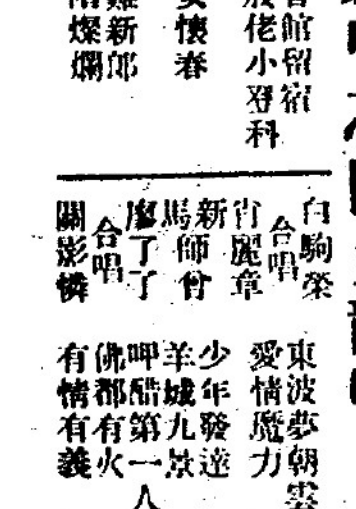 館留宿
佬小登科
懷春
新郎
燦爛
白駒榮
合唱
肖麗章
新馬師曾
廖了了
合唱
關影憐
東波夢朝雲
愛情魔力
少年發達
羊城九景
呷醋第一人
佛都有火
有情有義